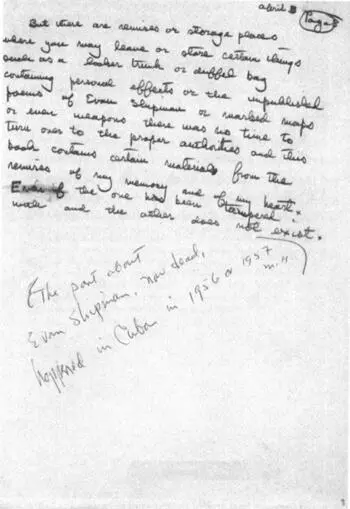 april 3 Page 5
But there are remises or storage places
where you may leave or store certain things
such as a locker trunk or duffel bag
containing personal effects or the unpublished
poems of Evan Shipman or marked maps
or even weapons there was no time to
turn over to the proper authorities and this
book contains certain materials from the
remises of my memory and of my heart.
Even if the one has been tampered
with and the other does not exist.
(The part about
Evan Shipman, now dead,
happened in Cuba in 1956 or 1957
M.H.